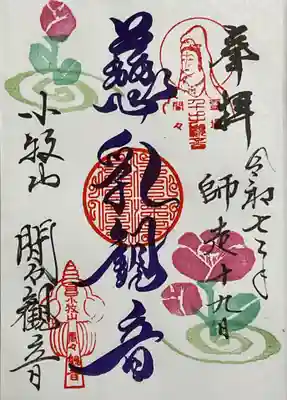 奉拝
令和七年
師走十九日
慈乳観音
小牧山
間々観音
小牧山
間々観音